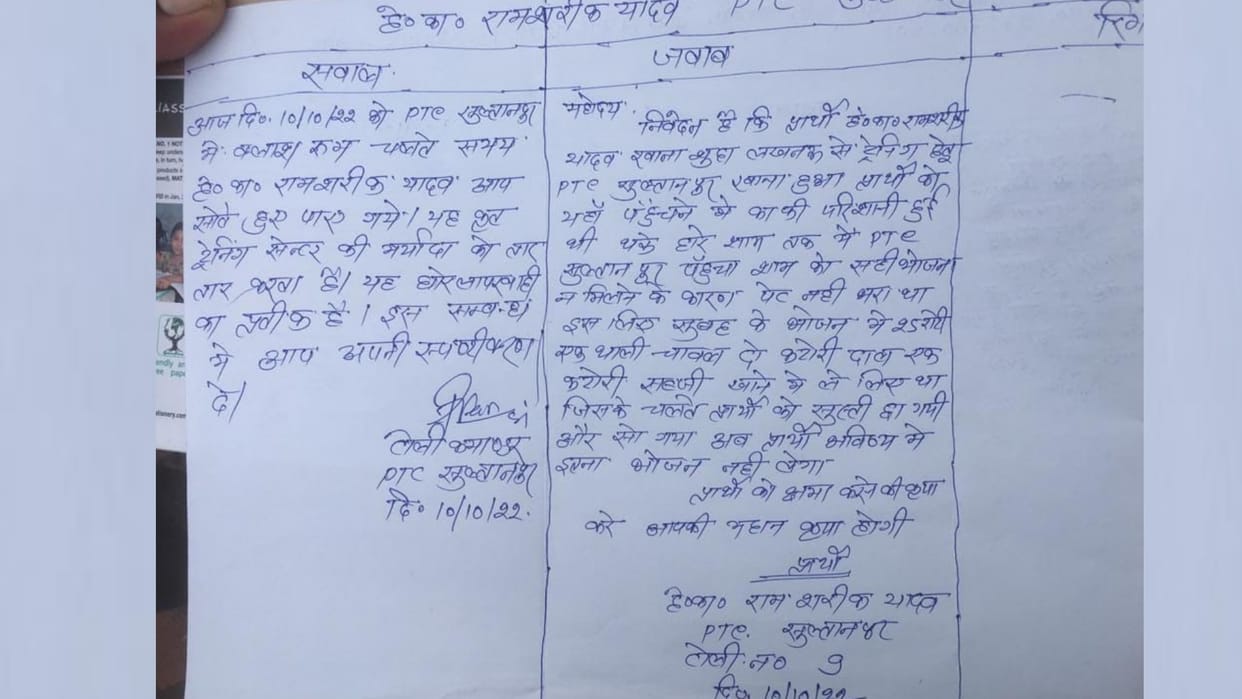 हे०का० रामशरीक यादव PTC
सवाल
जवाब
आज दि० 10/10/22 को PTC सुल्तानपुर
मे क्लाश रूम चलते समय
हे०का० रामशरीक यादव आप
सोते हुए पाए गये। यह कृत
ट्रेनिंग सेन्टर की मर्यादा को तार
तार करता है। यह घोर लापरवाही
का प्रतीक है। इस सम्बन्ध
मे आप अपनी स्पष्टीकरण
दे।
टोली कमाण्डर
PTC सुल्तानपुर
दि० 10/10/22.
महोदय
निवेदन है कि प्रार्थी हे०का० रामशरीक
यादव रवाना शुदा लखनऊ से ट्रेनिंग हेतू
PTC सुल्तानपुर रवाना हुआ प्रार्थी को
यहाँ पहुँचने मे काफी परिशानी हुई
थी थके हारे शाम तक मे PTC
सुल्तानपुर पहुँचा शाम को सही भोजन
न मिलने के कारण पेट नही भरा था
इस लिए सुबह के भोजन मे 25 रोटी
एक थाली चावल दो कटोरी दाल एक
कटोरी सब्जी खाने मे ले लिए था
जिसके चलते प्रार्थी को सुस्ती छा गयी
और सो गया अब प्रार्थी भविष्य मे
इतना भोजन नही लेगा
प्रार्थी को क्षमा करने की कृपा
करे आपकी महान कृपा होगी
प्रार्थी
हे०का० राम शरीक यादव
PTC. सुल्तानपुर
टोली न० 9
दि० 10/10/22